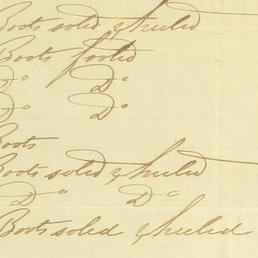 Boots soled & heeled
Boots footed
Do Do
Do Do
Boots
Boots soled & heeled
Do Do
Boots soled & heeled